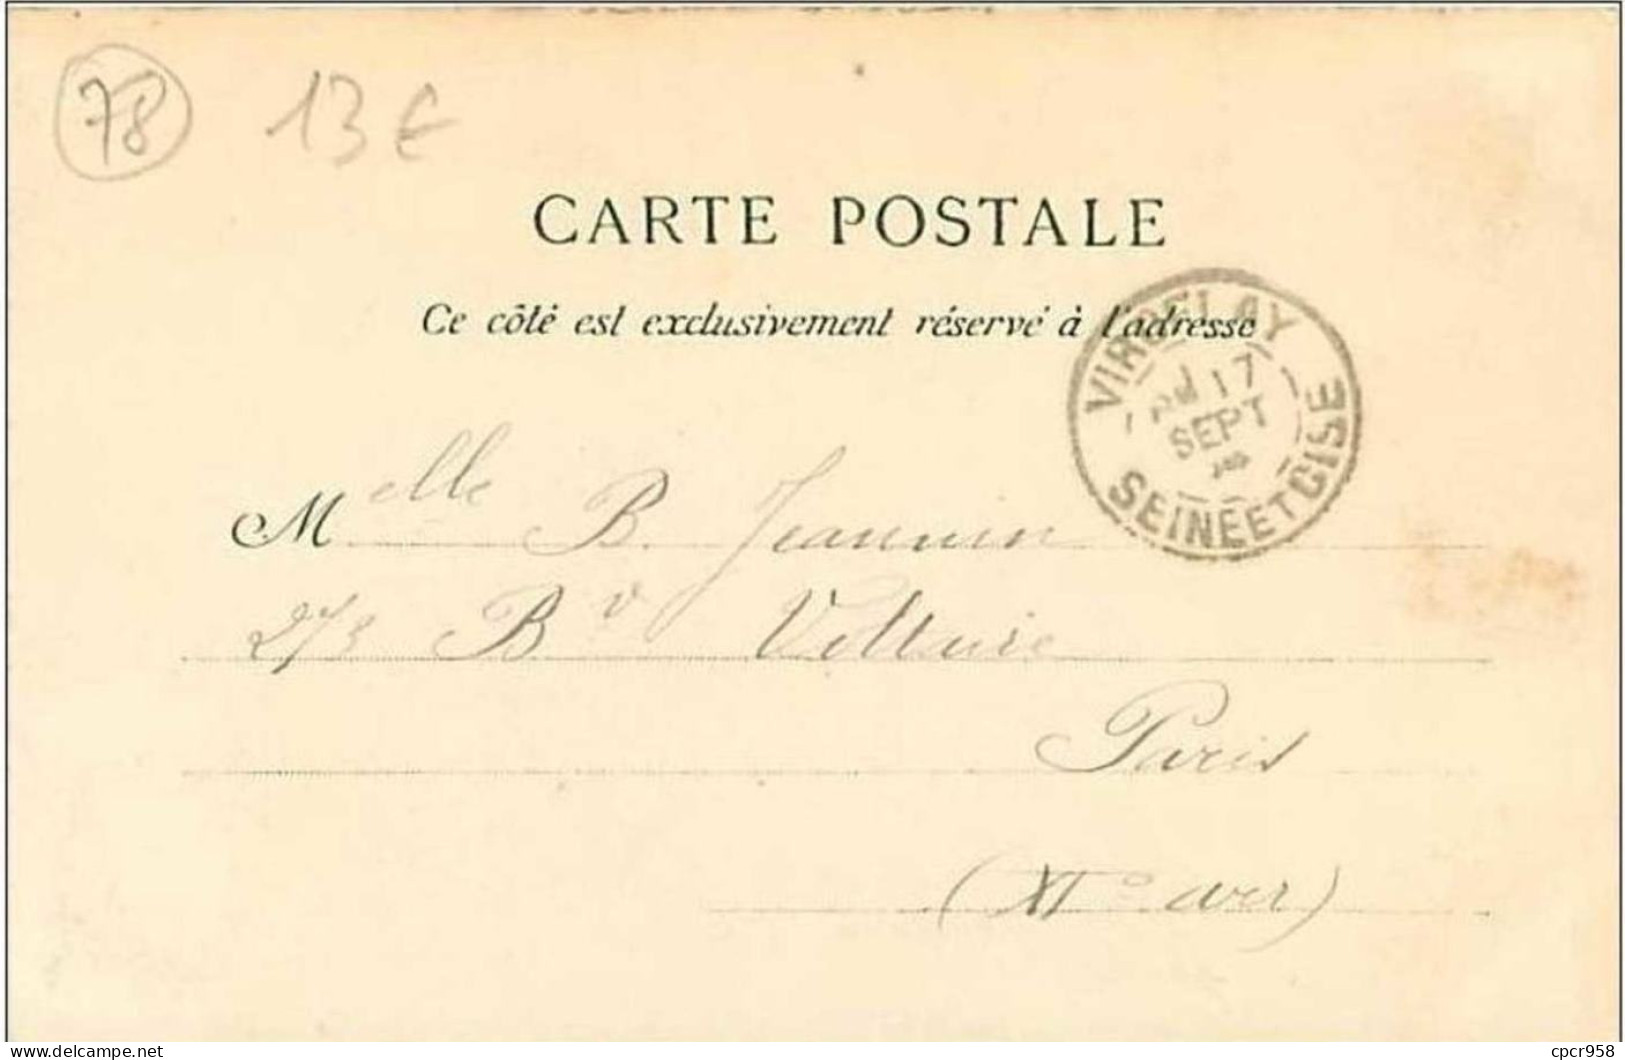 78 13€
CARTE POSTALE
Ce côté est exclusivement réservé à l'adresse
VIROFLAY
17
SEPT
SEINE ET OISE
Melle B. Jeannin
273 Bv Voltaire
Paris
(XIe arr)
www.delcampe.net
cpcr958